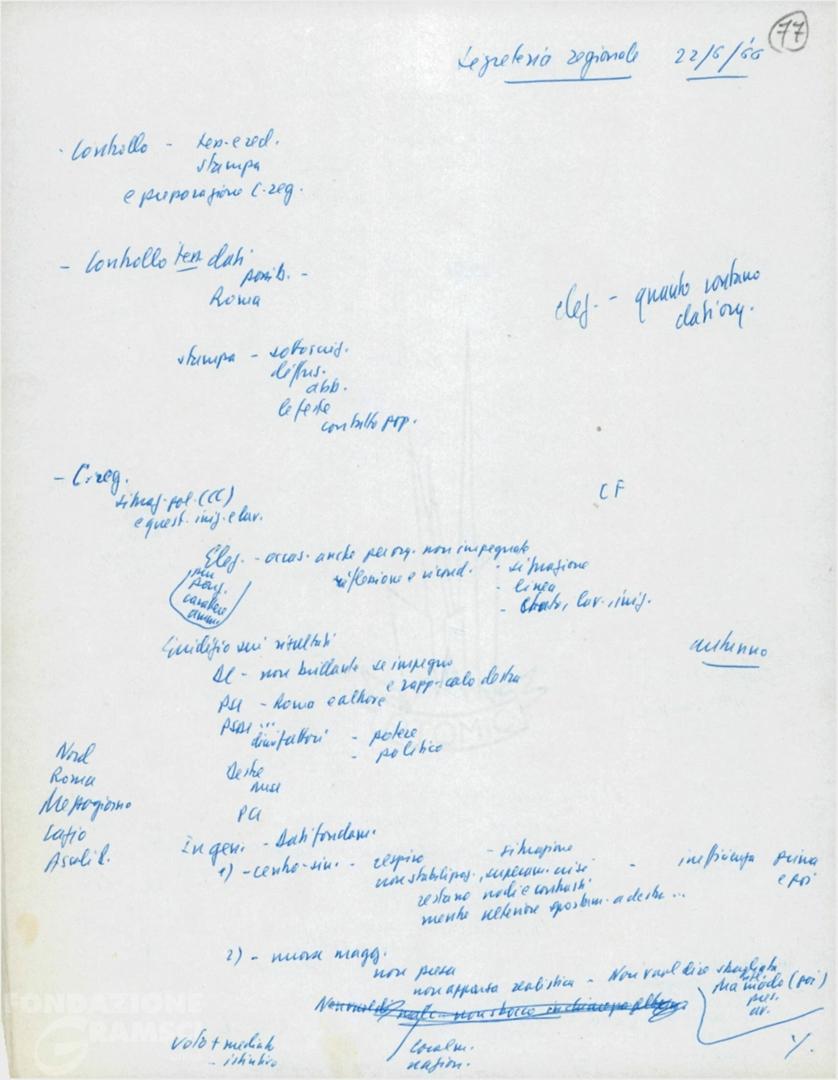 77
Segreteria regionale 22/6/66
- Controllo - tess. e recl.
stampa
e preparazione C. reg.
- Controllo tess dati
possib. -
Roma
elez. - quanto contano
dati org.
stampa - sottoscriz.
diffus.
abb.
le feste
contratto pop.
- C. reg.
CF
situaz. pol. (CC)
e quest. iniz. e lav.
Elez. - occas. anche per org. non impegnate
riflessione e ricond. - situazione
- linea
- lav., iniz.
per
carattere
Giudizio sui risultati
autunno
DC - non brillante se impegno
e rapp. calo destra
PSI - Roma e altrove
PSDI ...
fattori - potere
- politico
Destre
PCI
Nord
Roma
Mezzogiorno
Lazio
Ascoli P.
In gen. - Dati fondam.
1) - centro-sin. - respiro - situazione
non stabilizzaz., superam. crisi - inefficienza prima
e poi
restano nodi e contrasti
mentre ulteriore spostam. a destra...
2) - nuova magg.
non presa
non apparsa realistica - Non vuol dire sbagliata
Ma modo (poi)
Non vuol dire
voto + mediato
- istintivo
localm.
nazion.
%.
FONDAZIONE
GRAMSCI